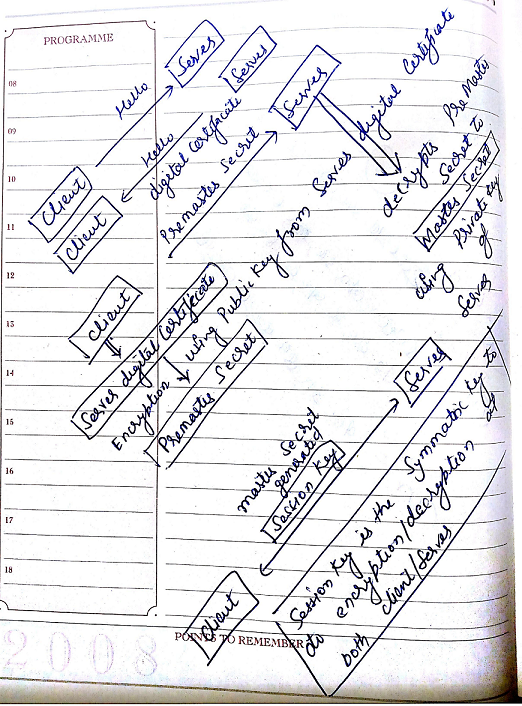 PROGRAMME
08
09
10
11
12
13
14
15
16
17
18
Client
Hello
Server
Server
Hello
digital certificate
Client
Premaster Secret
Server
decrypts PreMaster
Secret to
Master Secret
using Private Key
of
Server
Client
Server digital certificate
Encryption using Public Key from Server digital Certificate
Premaster Secret
Server
master Secret
generated
Session Key
Client
Session Key is the Symmetric Key to
do encryption/decryption at
both client/server
POINTS TO REMEMBER
2008